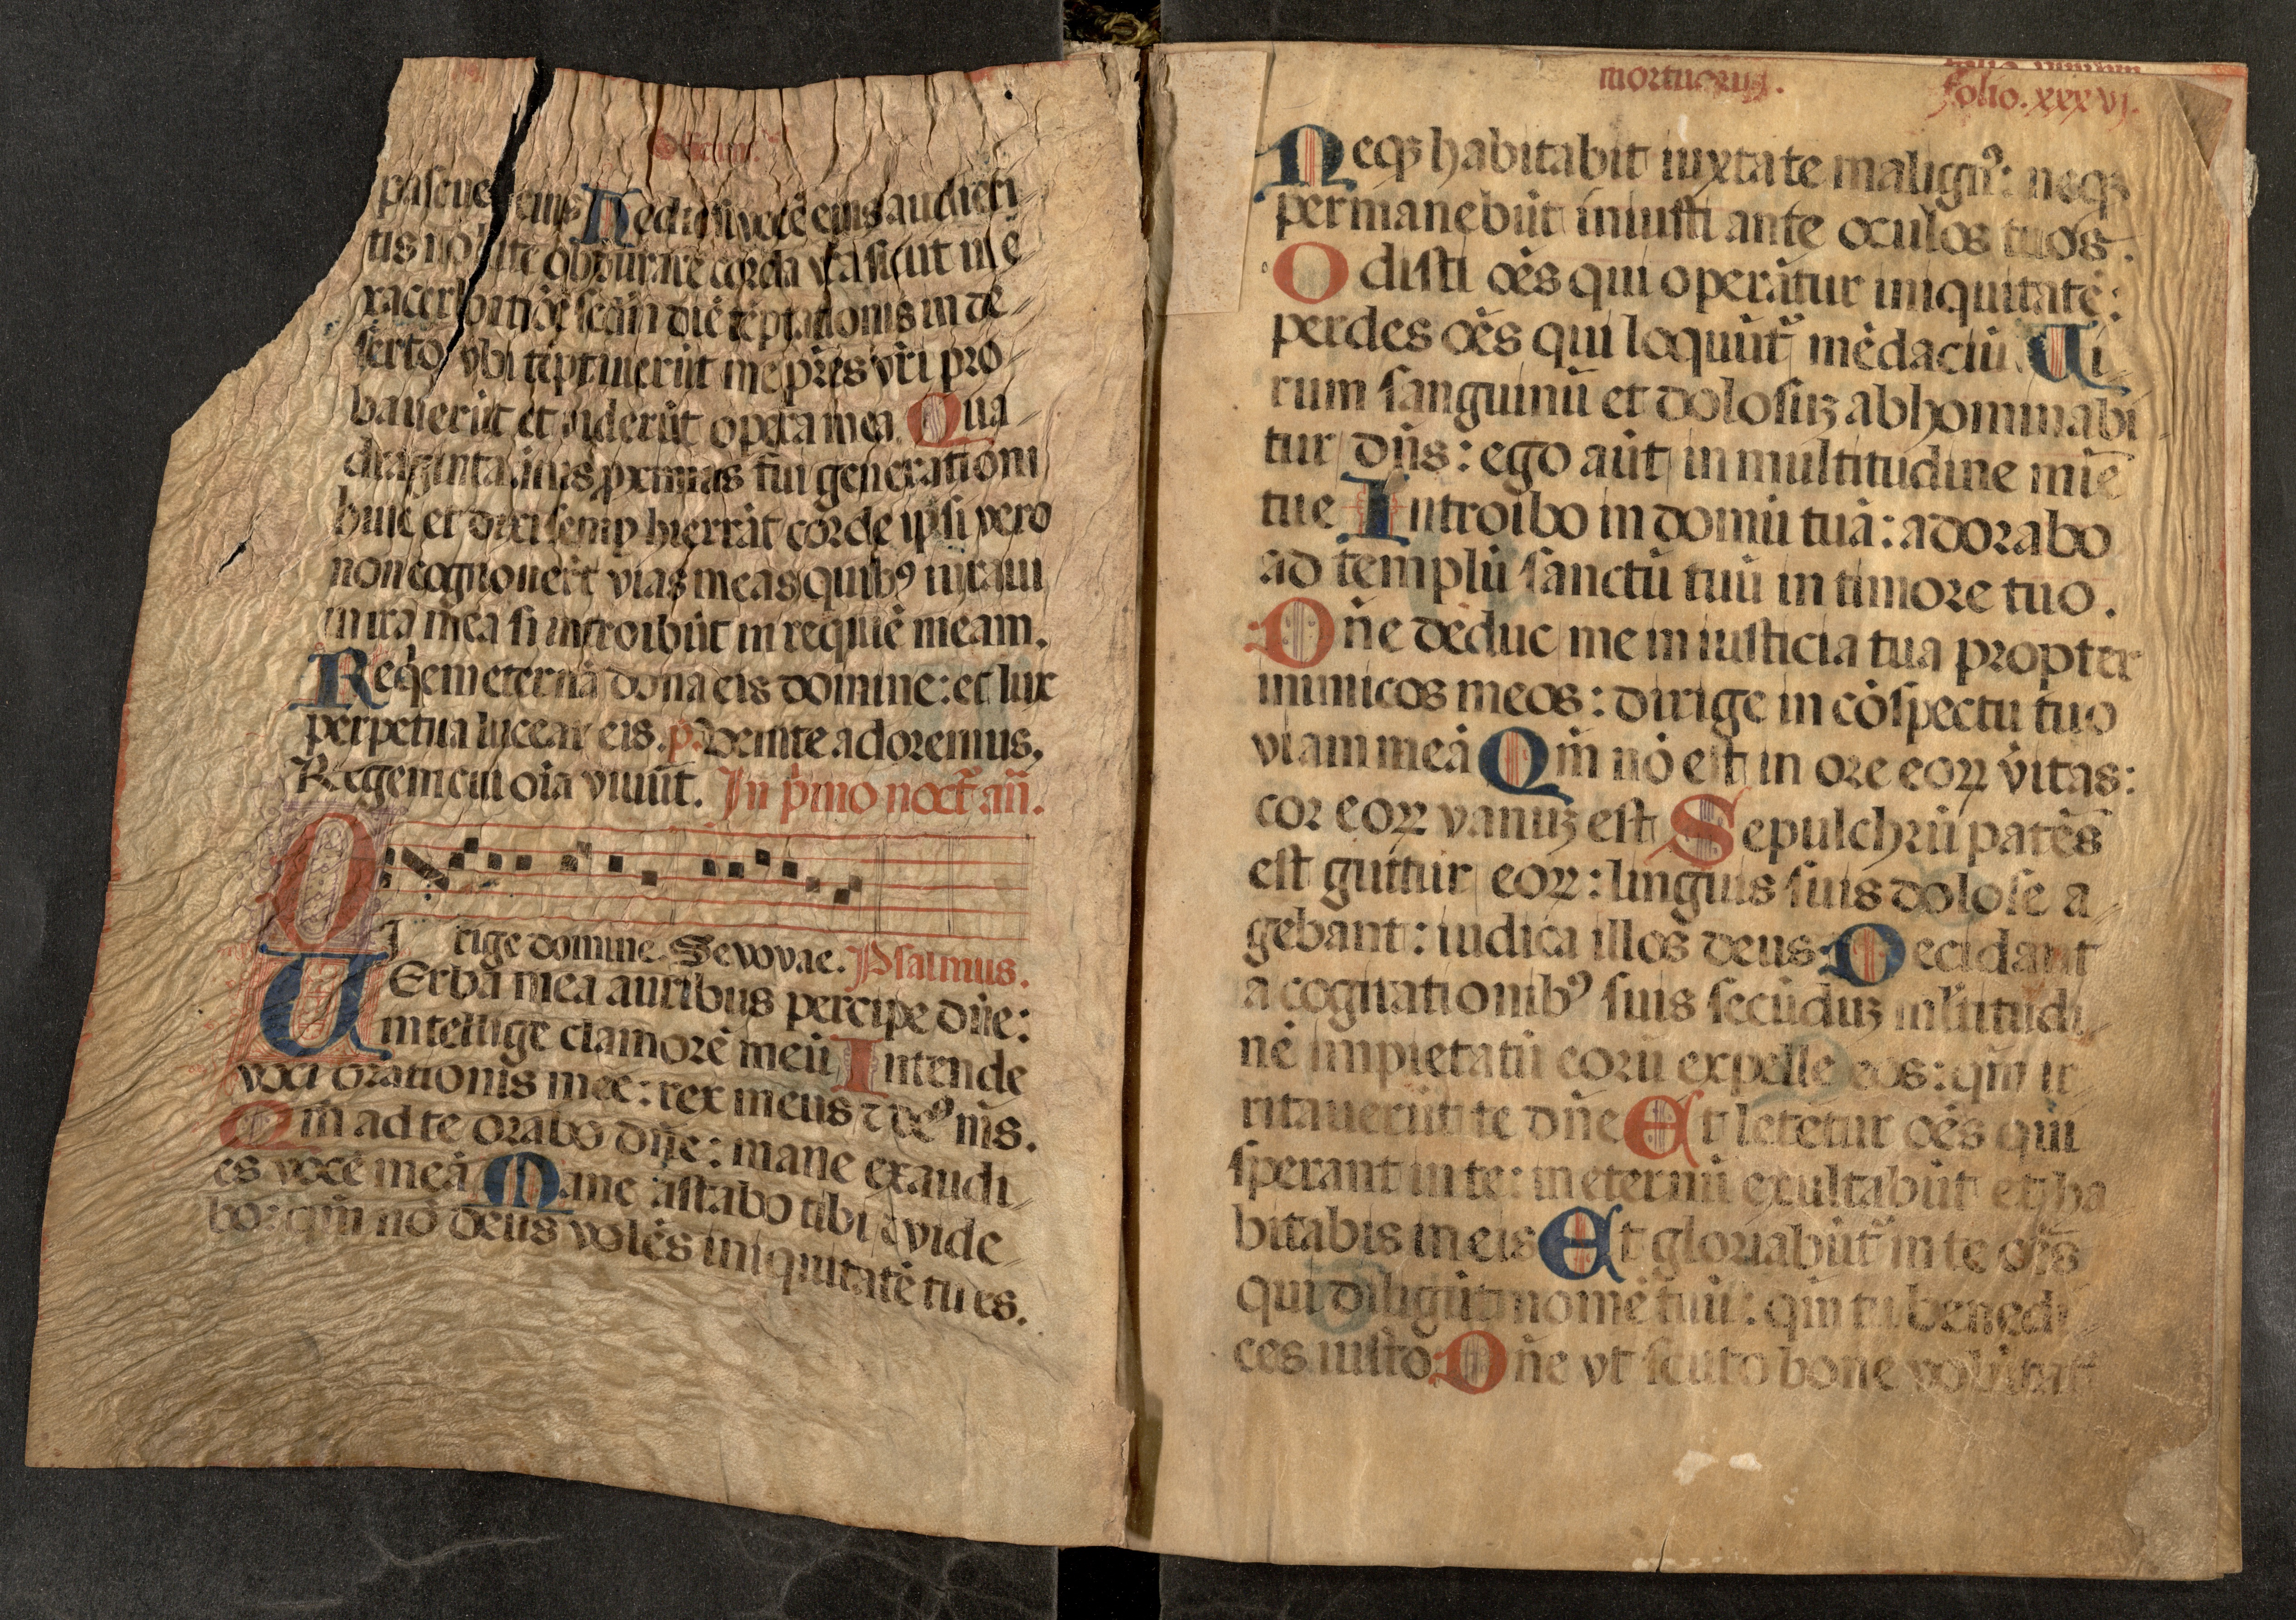 Officium.
pascue eius Hodie si vocē eius audieri
tis nolite obdurare corda vr̄a sicut in e
xacerbatiōe scd̄m diē tēptationis in de
serto vbi tēptauerūt me pr̄es vr̄i pro
bauerūt et viderūt opera mea Qua
draginta annis proximus fui generationi
huic et dixi semp hi errāt corde ipsi vero
non cognouerūt vias meas quibꝰ iuraui
in ira mea si introibūt in requiē meam.
Reqēm eternā dona eis domine: et lux
perpetua luceat eis. p̄. Venite adoremus.
Regem cui oīa viuūt. In pͥmo noct̄. añ.
DI rige domine. Sevovae. Psalmus.
VErba mea auribus percipe dn̄e:
intellige clamorē meū Intende
voci orationis mee: rex meus ⁊ deꝰ ms̄.
Qm̄ ad te orabo dn̄e: mane exaudi
es vocē meā Mane astabo tibi ⁊ vide
bo: qm̄ nō deus volēs iniquitatē tu es.
mortuoruꝫ.
folio. xxxvj.
Neqꝫ habitabit iuxta te malignꝰ: neqꝫ
permanebūt iniusti ante oculos tuos.
Odisti oēs qui operātur iniquitatē:
perdes oēs qui loquūt᷑ mēdaciū Vi
rum sanguinū et dolosuꝫ abhominabi
tur dn̄s: ego aūt in multitudine mīe
tue Introibo in domū tuā: adorabo
ad templū sanctū tuū in timore tuo.
Dn̄e deduc me in iusticia tua propter
inimicos meos: dirige in cōspectu tuo
viam meā Qm̄ nō est in ore eoꝝ v̄itas:
cor eoꝝ vanuꝫ est Sepulchrū patēs
est guttur eoꝝ: linguis suis dolose a
gebant: iudica illos deus Decidant
a cogitationibꝰ suis secūduꝫ ml̄titudi
nē impietatū eorū expelle eos: qm̄ ir
ritauerūt te dn̄e Et letētur oēs qui
sperant in te: in eternū exultabūt et ha
bitabis in eis Et gloriabūt᷑ in te oēs
qui diligūt nomē tuū: qm̄ tu benedi
ces iusto Dn̄e vt scuto bone volūtat